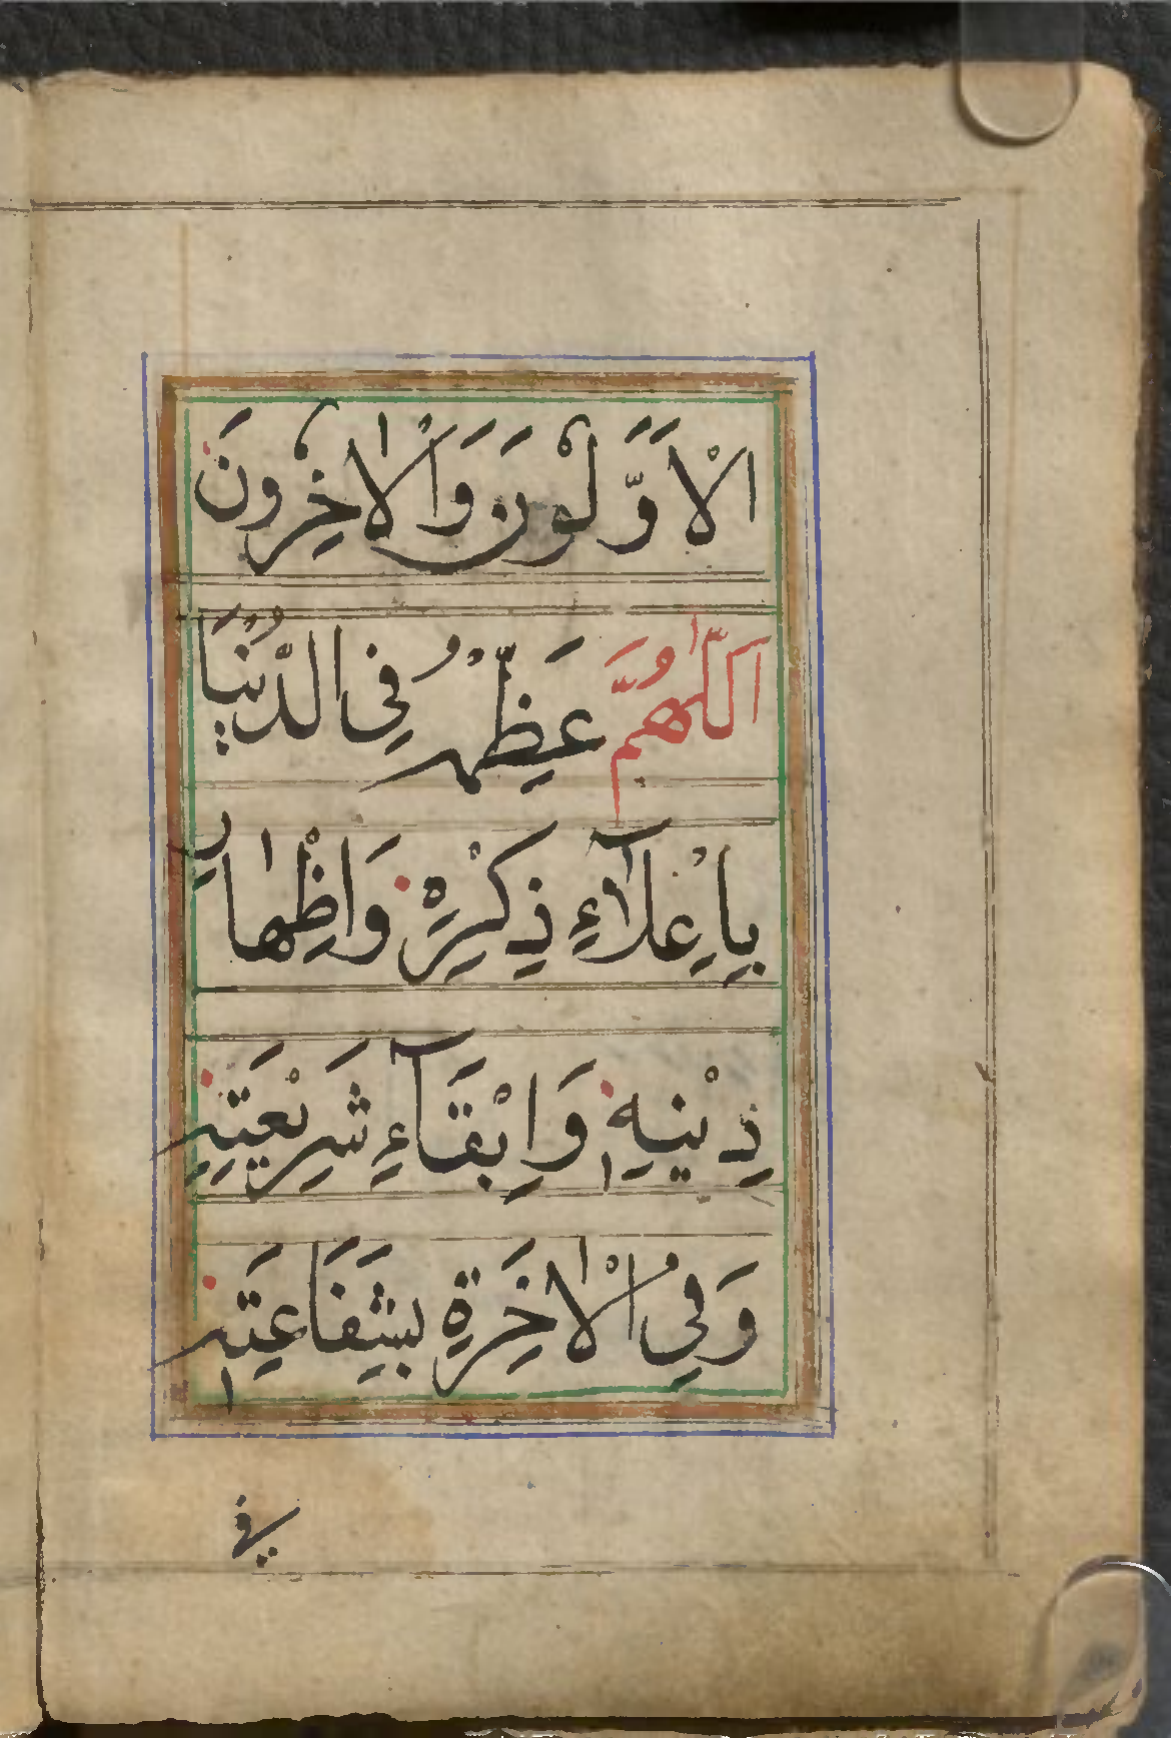 الْاَوَّلُوْنَ وَالْاٰخِرُونَ
اَللّٰهُمَّ عَظِّمْهُ فِى الدُّنْيَا
بِاِعْلَآءِ ذِكْرِهٖ وَاِظْهَارِ
دِيْنِهٖ وَاِبْقَآءِ شَرِيْعَتِهٖ
وَفِي الْاٰخِرَةِ بِشَفَاعَتِهٖ
فى